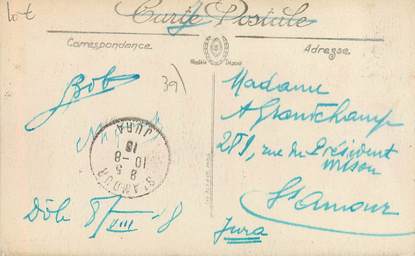 lot
Carte Postale
Correspondance
Adresse
Bob
39)
Madame
A Grantchamp
281, rue du Président
Wilson
St Amour
Jura
Dôle 8/VIII 18
ST AMOUR
8 5
10-8
18
JURA